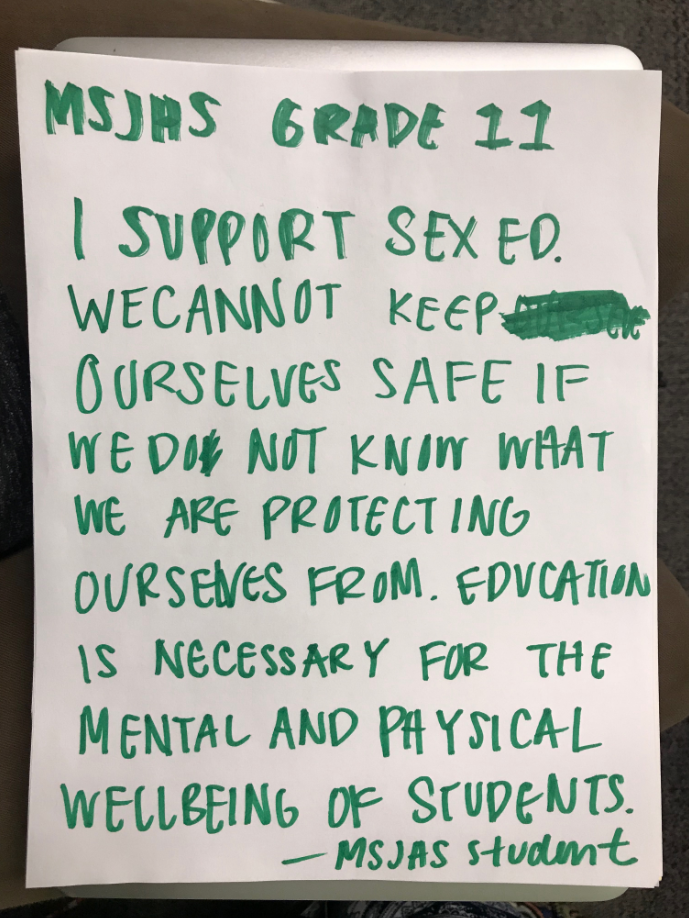 MSJHS GRADE 11
I SUPPORT SEX ED.
WE CANNOT KEEP
OURSELVES SAFE IF
WE DO NOT KNOW WHAT
WE ARE PROTECTING
OURSELVES FROM. EDUCATION
IS NECESSARY FOR THE
MENTAL AND PHYSICAL
WELLBEING OF STUDENTS.
— MSJAS student